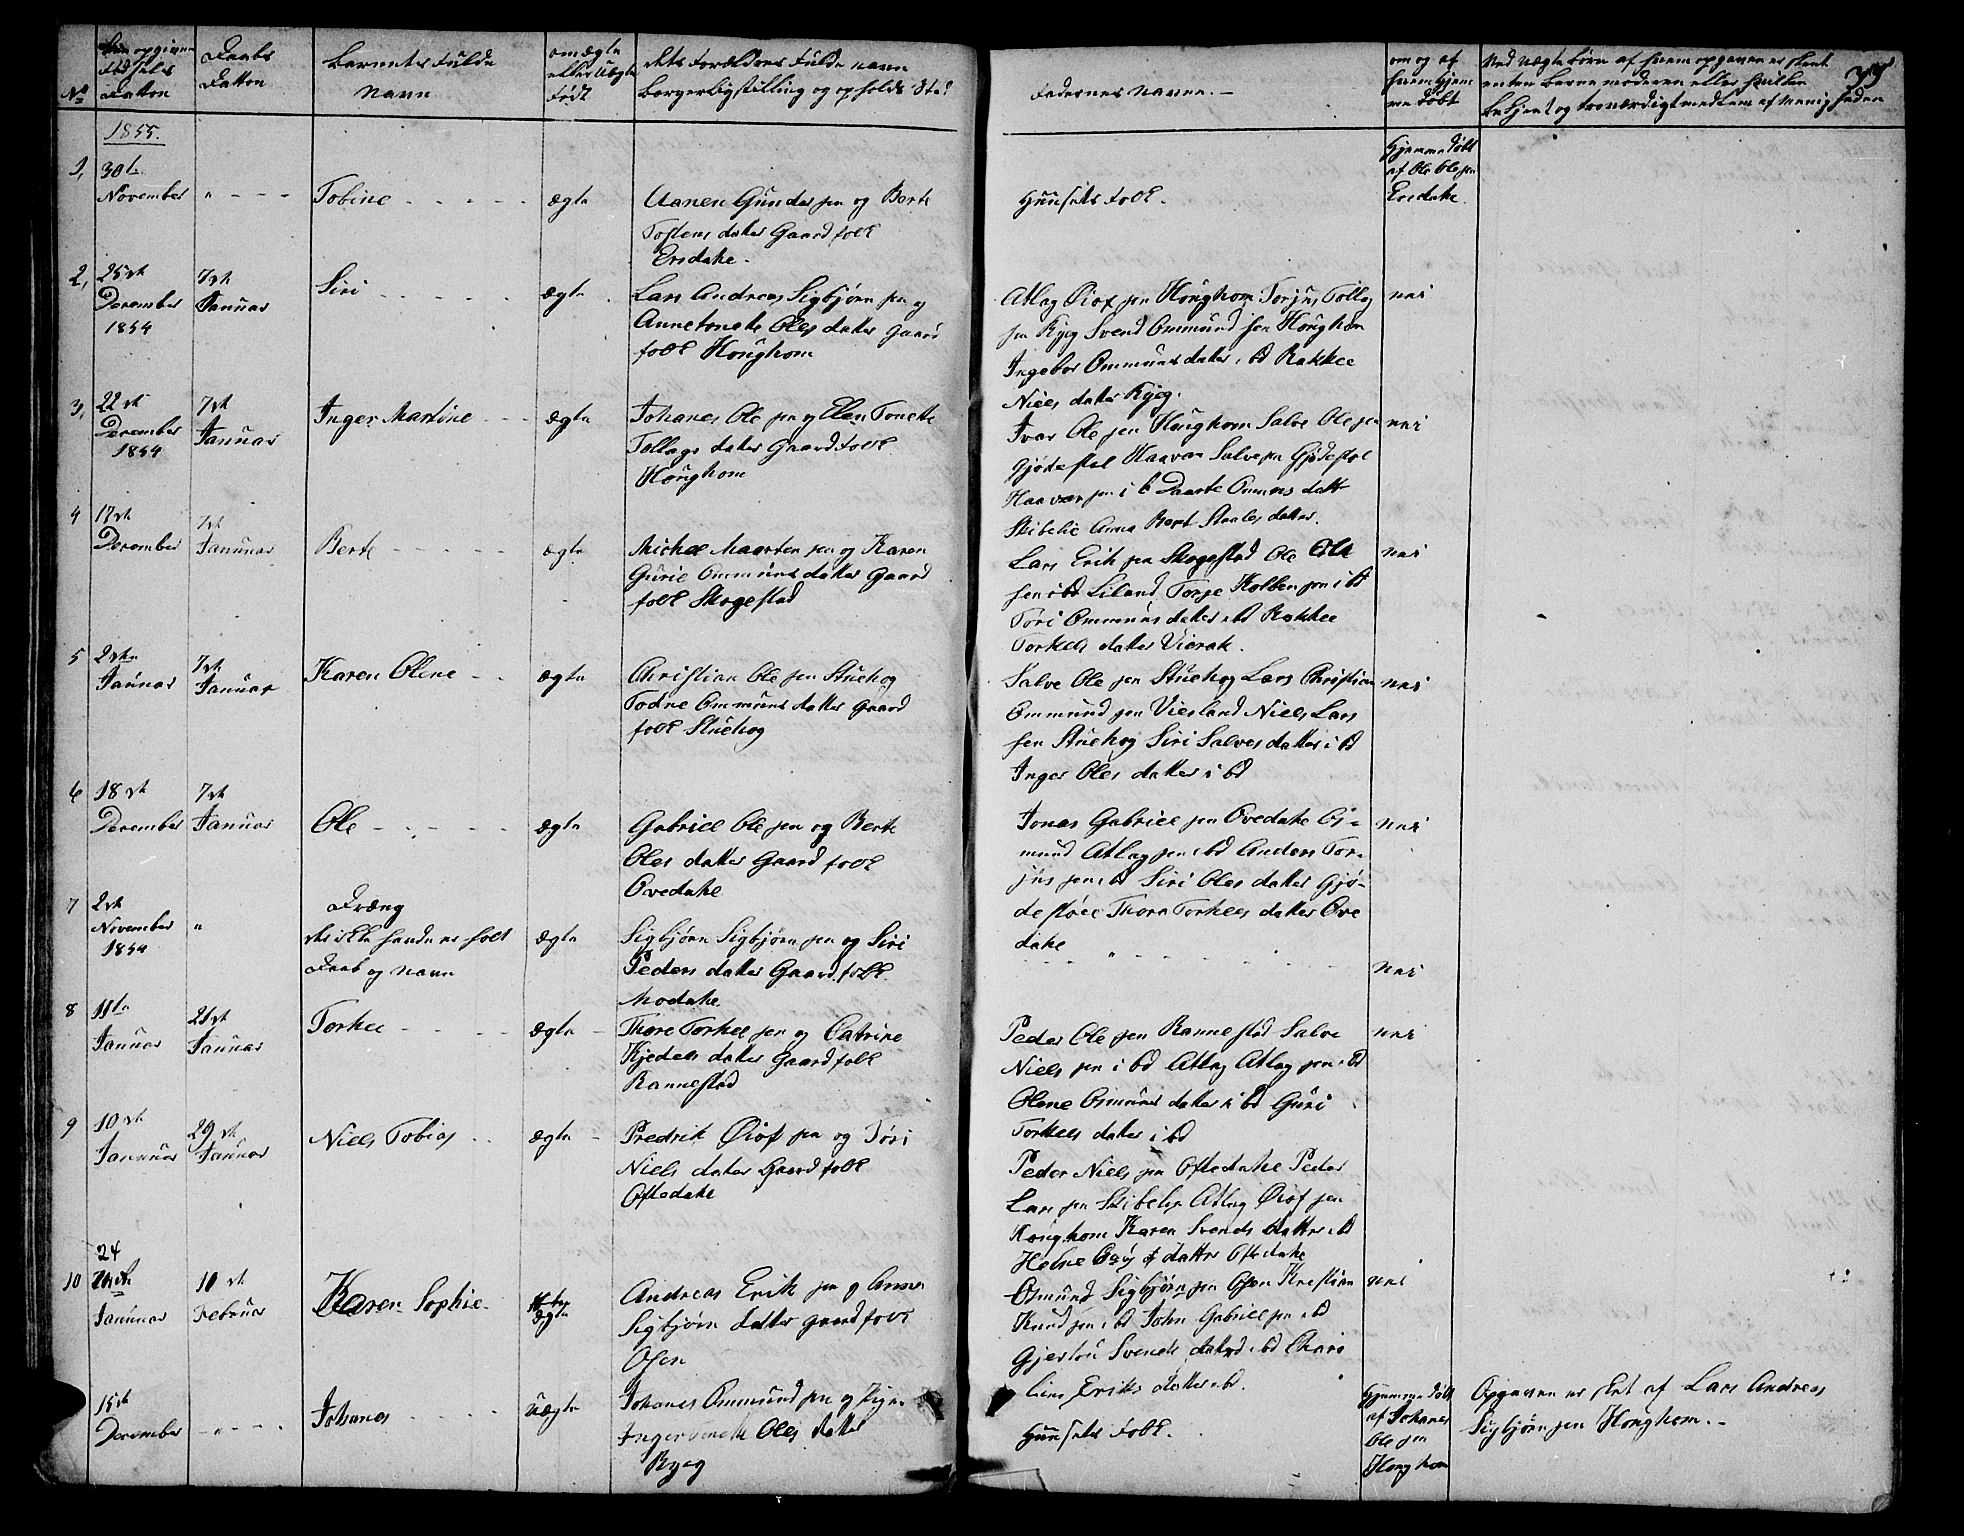 No
opgivne
Fødsels
Datton
Daabs
Datton
Barnets Fulde
Navn
om ægte
eller Uægte
Født
dets Forældres Fulde navn
borgerlig stilling og opholds Sted
Fadernes navne. —
om og af
hvem hjem
me døbt
Ved uægte børn af hvem opgaven er skeet
enten barne moderen eller hvilken
bekjent og troværdigt medlem af menigheden
1855.
1, 30te
November " - - -
Tobine - - - - -
ægte
Gunder sen og Berte
Tostens datter Gaard folk
Ersdale.
Huusets Folk.
Hjemme døbt
af Ole Ole sen
Ersdale
2, 25de
December
1854
7de
Januar
Siri - - - - -
ægte
Lars Andreas Sigbjørn sen og
Annetonette Oles datter Gaard
folk Houghom
Atlag Øiof sen Houghom Torjus Tollag
sen Ryeg Svend Ommund sen Houghom
Ingebor Ommuns datter ibd Rakkel
Niels datter Ryeg.
nei
3, 22de
December
1854
7de
Januar
Inger Martine - -
ægte
Johanes Ole sen og Elen Tonette
Tollags datter Gaard folk
Houghom
Ivar Ole sen Houghom Salve Ole sen
Gjødestøl Haavar Salve sen Gjødestøl
Haavar sen i b Daarte Omuns datt
Skibelie Anna Bert Staales datter.
nei
4 17de
December
7de
Januar
Berte - - - - -
ægte
Michel Maarten sen og Karen
Gurie Ommuns datter Gaard
folk Skogestad
Lars Erik sen Skogestad Ole Ole
sen ibd Liland Torge Kolben sen i bd
Tori Ommuns datter ibd Rakkel
Torkels datter Vierak.
nei
5 2den
Januar
7de
Januar
Karen Olene - -
ægte
Christian Ole sen Stuehog
Todne Ommuns datter Gaard
folk Stuehog
Salve Ole sen Stuehog Lars Christian
Ommund sen Viesland Niels Lars
sen Stuehog Siri Salves datter i bd
Inger Oles datter i bd
nei
6 18de
December
7de
Januar
Ole - - - - -
ægte
Gabriel Ole sen og Berte
Oles datter Gaard folk
Ovedale
Jonas Gabriel sen Ovedale Os-
mund Atlag sen ibd Anders Tor-
jus sen ibd Siri Oles datter Gjø-
destøel Thora Torkels datter Ove
dale
nei
7 2de
November
1854
"
Dræng
Daab og navn
ægte
Sigbjørn Sigbjørn sen og Siri
Peders datter Gaard folk
Modale.
nei
8 11te
Januar
21de
Januar
Torkel - - - -
ægte -
Thore Torkel sen og Catrine
Kjedels datter Gaard folk
Rannestad
Peder Ole sen Rannestad Salve
Niels sen i bd Atlag Atlag sen ibd
Olene Osmuns datter i bd Guri
Torkels datter i bd
nei
9 10de
Januar
29de
Januar
Niels Tobias - -
ægte -
Predrik Øiof sen og Jøri
Niels datter Gaard folk
Oftedale
Peder Niels sen Oftedale Peder
Lars sen Skibelie Atlag Øiof sen
Houghom Karen Svends datter ibd
Helve datter Oftedale
24
10
Januar
11de
Februar
Karen Sophie -
ægte
Andreas Erik sen og Anne
Sigbjørn datter Gaard folk
Osen
Osmund Sigbjørn sen Osen Krestian
Knud sen ibd John Gabriel sen ibd
Gjerlou Svends datter ibd Charo
line Eriks datter ibd.
nei
15de
December
- " - - -
Johanes - - - -
uægte
Johanes Ommund sen og Pige
Oles datter
Ryeg
Huusets Folk.
Hjemme døbt
af Johanes
Ole sen
Houghom
Opgaven er skeet af Lars Andreas
Sigbjørn sen Houghom. -